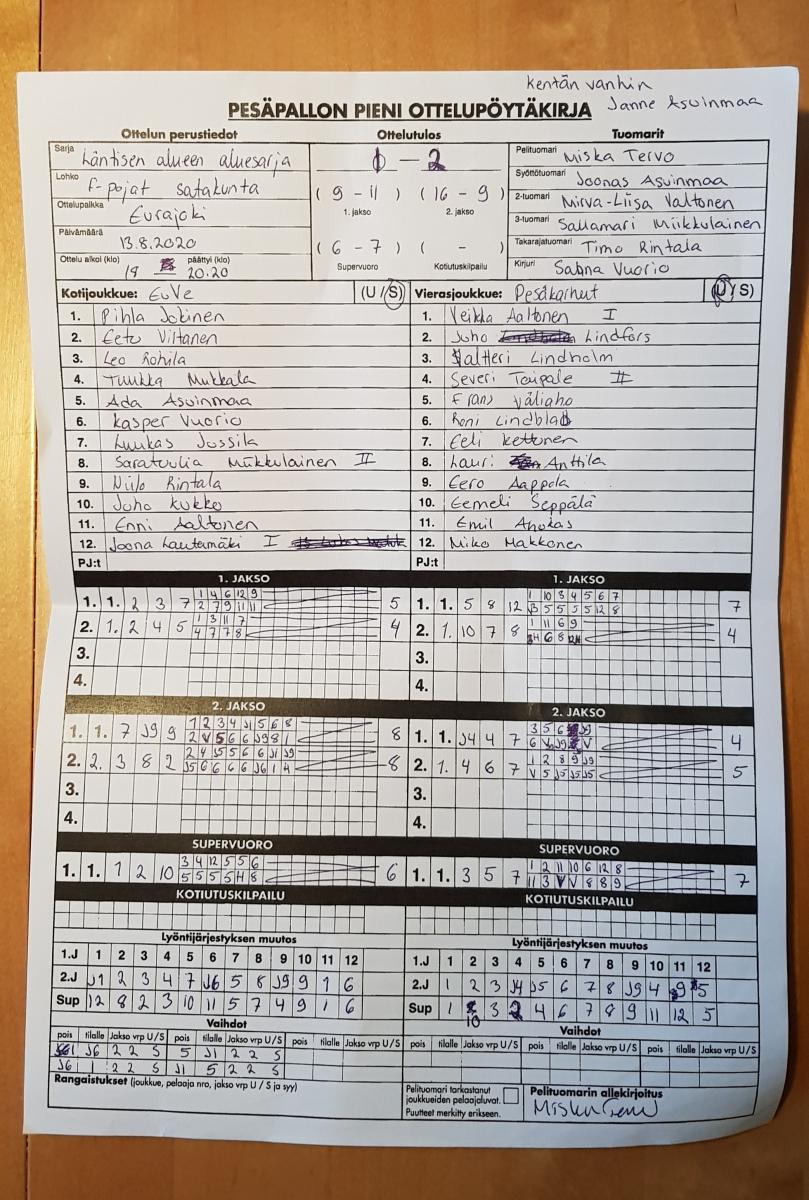 Kentän vanhin
Janne Asuinmaa
PESÄPALLON PIENI OTTELUPÖYTÄKIRJA
Ottelun perustiedot
Sarja Läntisen alueen aluesarja
Lohko F-pojat Satakunta
Ottelupaikka Eurajoki
Päivämäärä 13.8.2020
Ottelu alkoi (klo) päättyi (klo)
20.20
Ottelutulos
– 2
( 9 – 11 ) ( 16 – 9 )
1. jakso 2. jakso
( 6 – 7 ) ( – )
Supervuoro Kotiutuskilpailu
Tuomarit
Pelituomari Miska Tervo
Syöttötuomari Joonas Asuinmaa
2-tuomari Mirva-Liisa Valtonen
3-tuomari Sallamari Miikkulainen
Takarajatuomari Timo Rintala
Kirjuri Sabina Vuorio
Kotijoukkue: EuVe (U / S)
1. Pihla Jokinen
2. Eetu Viltanen
3. Leo Rohila
4. Tuukka Mukkala
5. Ada Asuinmaa
6. Kasper Vuorio
7. Luukas Jussila
8. Saratuulia Miikkulainen II
9. Niilo Rintala
10. Juho Kukko
11. Enni Aaltonen
12. Joona Lautamäki I
PJ:t
Vierasjoukkue: Pesäkarhut (U / S)
1. Veikka Aaltonen I
2. Juho Lindfors
3. Valtteri Lindholm
4. Severi Taipale II
5. Frans Väliaho
6. Roni Lindblad
7. Eeli Kettunen
8. Lauri Anttila
9. Eero Aappola
10. Eemeli Seppälä
11. Emil Ahokas
12. Miko Makkonen
PJ:t
1. JAKSO
1. 1. 2 3 7 1 4 6 12 9 5
2 7 9 11 11
2. 1. 2 4 5 1 3 11 7 4
4 7 7 8
3.
4.
1. JAKSO
1. 1. 5 8 12 1 10 3 4 5 6 7 7
3 5 5 5 5 12 8
2. 1. 10 7 8 1 11 6 9 4
3.
4.
2. JAKSO
1. 1. 7 J9 9 1 2 3 4 J1 5 6 8 8
2 V 5 6 6 J9 8 1
2. 2. 3 8 2 2 4 J5 5 6 6 J1 J9 8
J5 6 6 6 6 J6 1 4
3.
4.
2. JAKSO
1. 1. J4 4 7 4
2. 1. 4 6 7 1 2 8 9 J9 5
V 5 J5 J5 J5
3.
4.
SUPERVUORO
1. 1. 1 2 10 3 4 12 5 5 6 6
5 5 5 5 H 8
SUPERVUORO
1. 1. 3 5 7 1 2 11 10 6 12 8 7
11 3 V V 8 8 9
KOTIUTUSKILPAILU
KOTIUTUSKILPAILU
Lyöntijärjestyksen muutos
1.J 1 2 3 4 5 6 7 8 9 10 11 12
2.J J1 2 3 4 7 J6 5 8 J9 9 1 6
Sup 12 8 2 3 10 11 5 7 4 9 1 6
Lyöntijärjestyksen muutos
1.J 1 2 3 4 5 6 7 8 9 10 11 12
2.J 1 2 3 J4 J5 6 7 8 J9 4 9 5
Sup 1 10 3 2 4 6 7 8 9 11 12 5
Vaihdot
pois tilalle Jakso vrp U/S pois tilalle Jakso vrp U/S pois tilalle Jakso vrp U/S
J6 2 2 S 5 J1 2 2 S
J6 1 2 2 S J1 5 2 2 S
Vaihdot
pois tilalle Jakso vrp U/S pois tilalle Jakso vrp U/S pois tilalle Jakso vrp U/S
Rangaistukset (joukkue, pelaaja nro, jakso vrp U / S ja syy)
Pelituomari tarkastanut
joukkueiden pelaajaluvat.
Puutteet merkitty erikseen.
Pelituomarin allekirjoitus
Miska Tervo